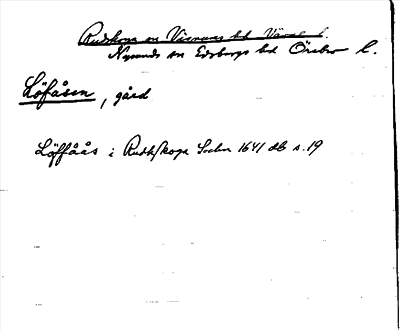 Rudskoga sn Visnums hd Värml. l.
Nysunds sn Edsbergs hd Örebro l.
Löfåsen, gård
Löffåås i Rudhskoga Sochn 1641 db s. 19